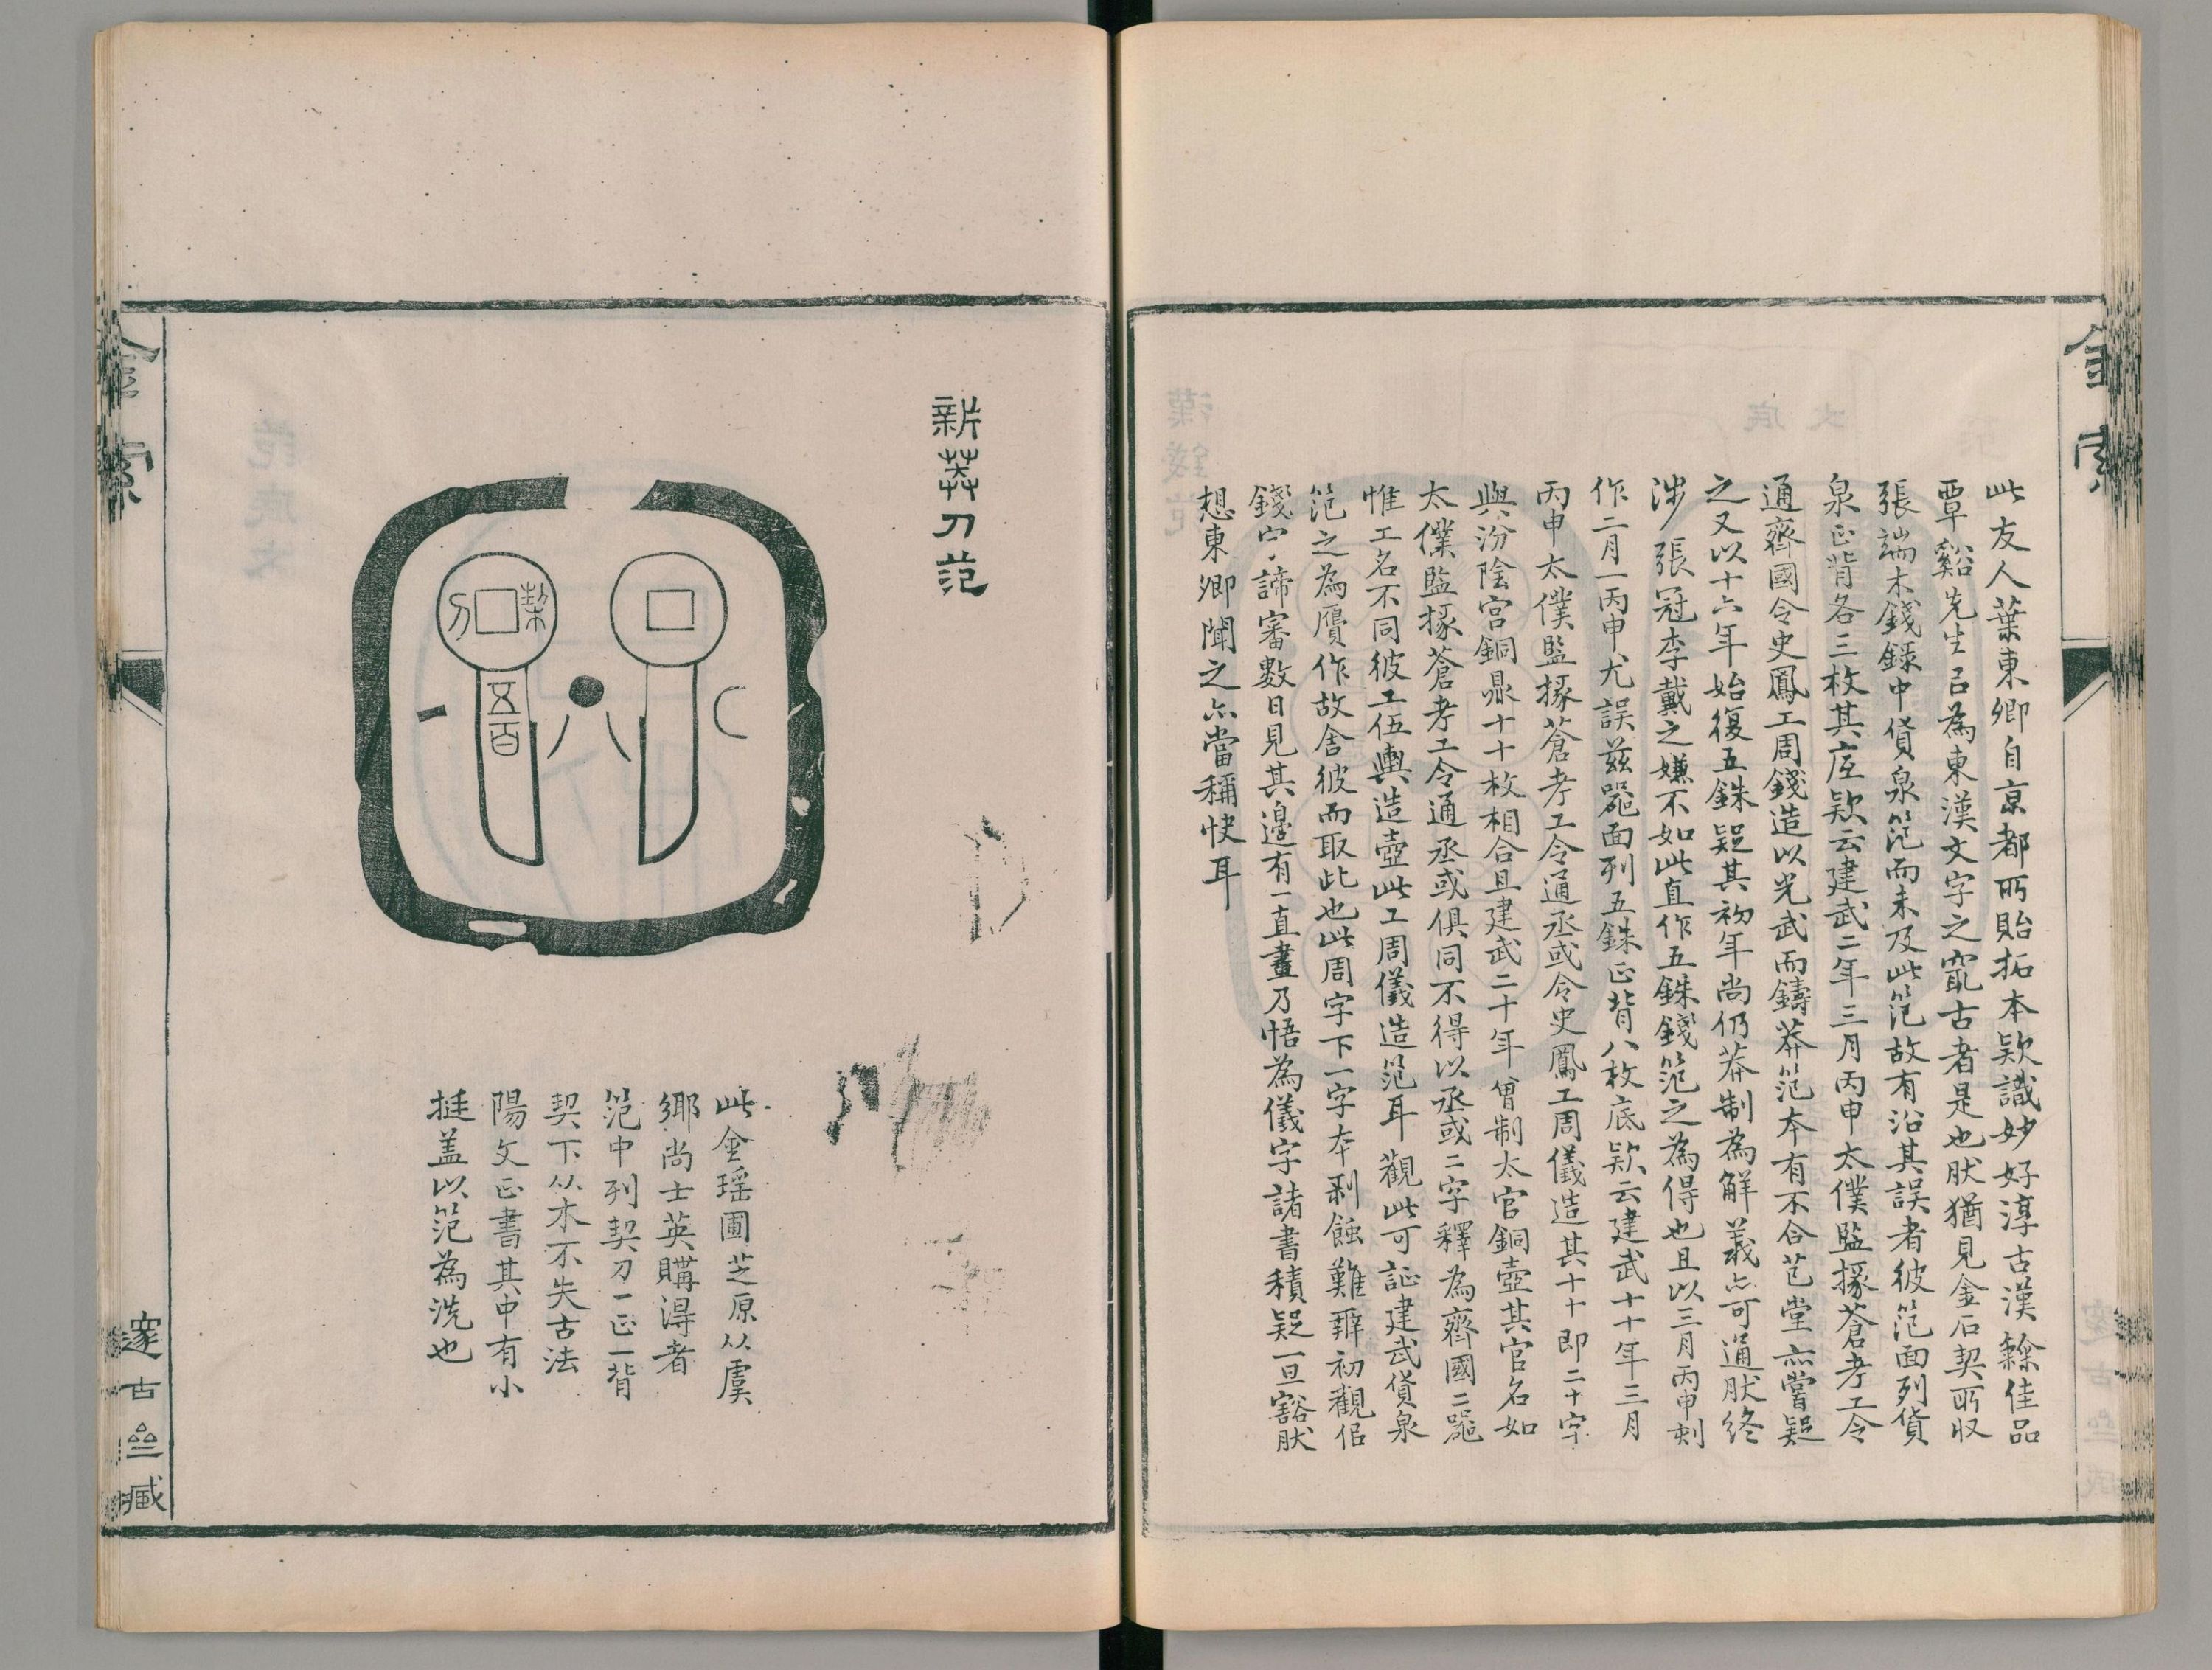 金索
此友人葉東卿自京都所貽拓本欵識妙好淳古漢隸佳品
覃谿先生㠯為東漢文字之冣古者是也肰猶見金石契所収
張端木錢錄中貨泉笵而未及此笵故有沿其誤者彼笵面列貨
泉正背各三枚其底欵云建武二年三月丙申太僕監掾蒼考工令
通齊國令史鳳工周錢造以光武而鑄莽笵本有不合芑堂亦嘗疑
之又以十六年始復五銖疑其初年尚仍莽制為解義亦可通肰終
涉張冠李戴之嫌不如此直作五銖錢笵之為得也且以三月丙申刺
作二月一丙申尤誤兹器面列五銖正背八枚底欵云建武十十年三月
丙申太僕監掾蒼考工令通丞或令史鳳工周儀造其十十即二十字
與汾陰宮銅鼎十十枚相合且建武二十年曾制太官銅壺其官名如
太僕監掾蒼考工令通丞或俱同不得以丞或二字釋為齊國二器
惟工名不同彼工伍輿造壺此工周儀造笵耳觀此可証建武貨泉
笵之為贋作故舍彼而取此也此周字下一字本剥蝕難辨初觀佀
錢字諦審數日見其邊有一直畫乃悟為儀字諸書積疑一旦豁肰
想東卿聞之亦當稱快耳
新莽刀笵
契刀
五百
此金瑶圃芝原从虞
鄉尚士英購淂者
笵中列契刀一正一背
契下从木不失古法
陽文正書其中有小
挺盖以笵為洗也
金索
邃古亝臧